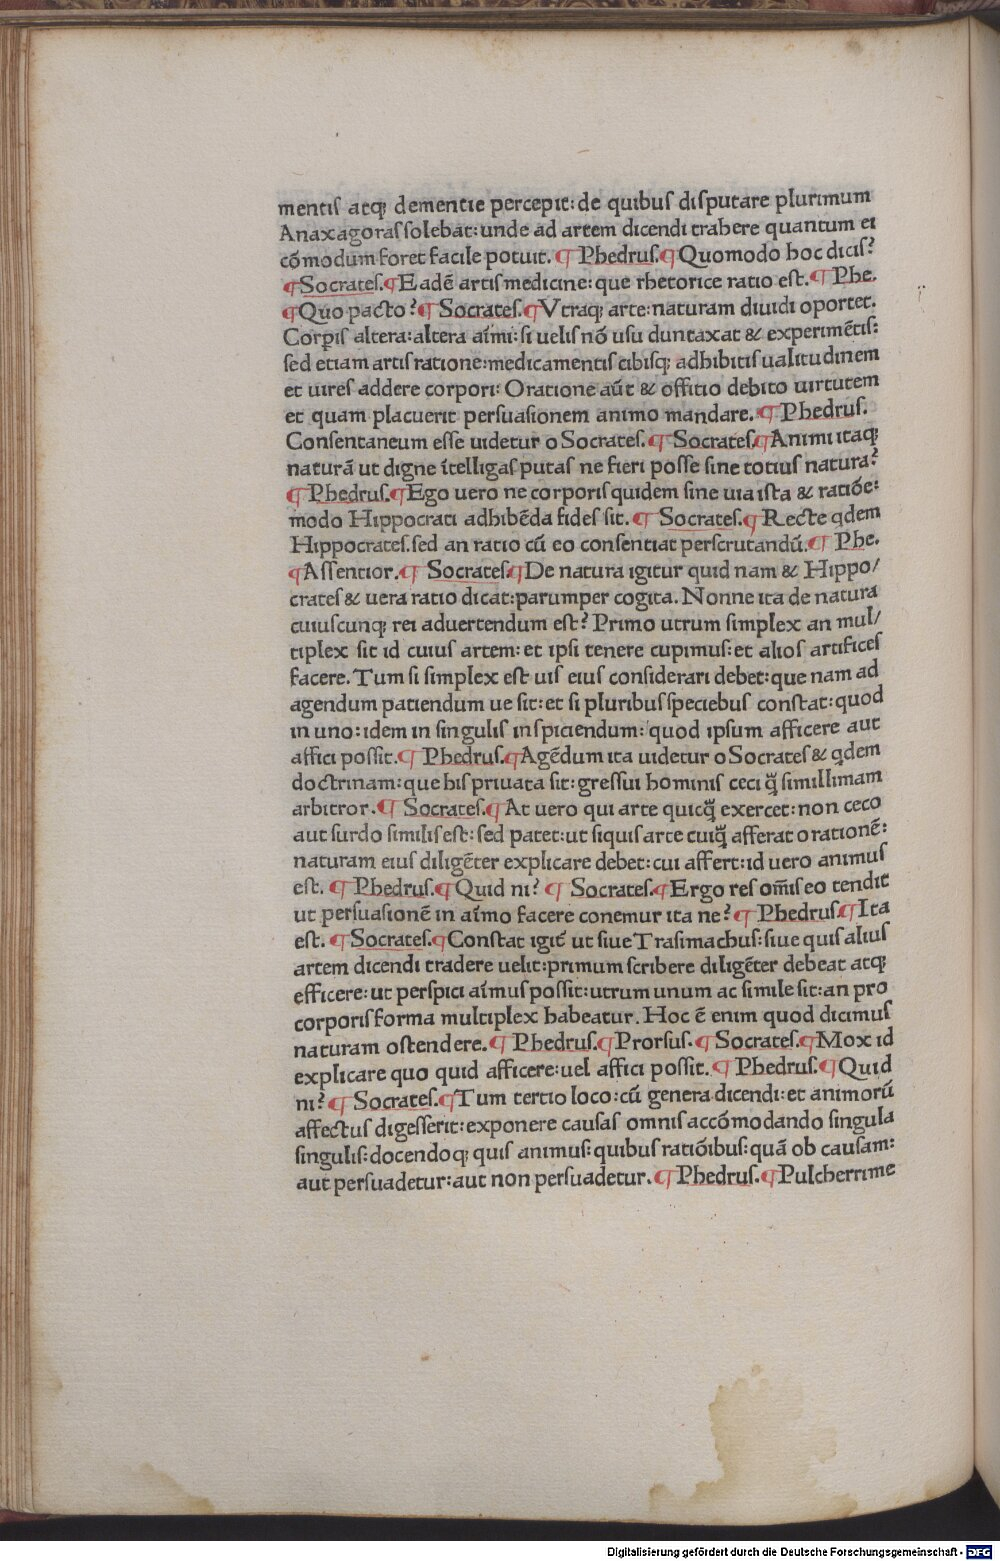 mentiſ atqꝫ dementie percepit: de quibuſ diſputare plurimum
Anaxagoraſ ſolebat: unde ad artem dicendi trahere quantum ei
cōmodum foret facile potuit. ¶ Phedruſ. ¶ Quomodo hoc diciſ?
¶ Socrateſ. ¶ Eadē artiſ medicine: que rhetorice ratio eſt. ¶ Phe.
¶ Quo pacto? ¶ Socrateſ. ¶ Vtraqꝫ arte: naturam diuidi oportet.
Corꝑiſ altera: altera aīmi: ſi ueliſ nō uſu duntaxat & experimētiſ:
ſed etiam artiſ ratione: medicamentiſ cibiſqꝫ adhibitiſ ualitudinem
et uireſ addere corpori: Oratione aūt & offitio debito uirtutem
et quam placuerit perſuaſionem animo mandare. ¶ Phedruſ.
Conſentaneum eſſe uidetur o Socrateſ. ¶ Socrateſ. ¶ Animi itaqꝫ
naturā ut digne ītelligaſ putaſ ne fieri poſſe ſine totiuſ natura?
¶ Phedruſ. ¶ Ego uero ne corporiſ quidem ſine uia iſta & ratiōe:
modo Hippocrati adhibēda fideſ ſit. ¶ Socrateſ. ¶ Recte qdem
Hippocrateſ. ſed an ratio cū eo conſentiat perſcrutandū. ¶ Phe.
¶ Aſſentior. ¶ Socrateſ. ¶ De natura igitur quid nam & Hippo/
crateſ & uera ratio dicat: parumper cogita. Nonne ita de natura
cuiuſcunqꝫ rei aduertendum eſt? Primo utrum ſimplex an mul/
tiplex ſit id cuiuſ artem: et ipſi tenere cupimuſ: et alioſ artificeſ
facere. Tum ſi ſimplex eſt uiſ eiuſ conſiderari debet: que nam ad
agendum patiendum ue ſit: et ſi pluribuſ ſpeciebuſ conſtat: quod
in uno: idem in ſinguliſ inſpiciendum: quod ipſum afficere aut
affici poſſit. ¶ Phedruſ. ¶ Agēdum ita uidetur o Socrateſ & qdem
doctrinam: que hiſ priuata ſit: greſſui hominiſ ceci q̄ſimillimam
arbitror. ¶ Socrateſ. ¶ At uero qui arte quicq̄ exercet: non ceco
aut ſurdo ſimiliſ eſt: ſed patet: ut ſiquiſ arte cuiq̄ afferat orationē:
naturam eiuſ diligēter explicare debet: cui affert: id uero animuſ
eſt. ¶ Phedruſ. ¶ Quid ni? ¶ Socrateſ. ¶ Ergo reſ om̄iſ eo tendit
ut perſuaſionē in aīmo facere conemur ita ne? ¶ Phedruſ. ¶ Ita
eſt. ¶ Socrateſ. ¶ Conſtat igit̄ ut ſiue Traſimachuſ: ſiue quiſ aliuſ
artem dicendi tradere uelit: primum ſcribere diligēter debeat atqꝫ
efficere: ut perſpici aīmuſ poſſit: utrum unum ac ſimile ſit: an pro
corporiſ forma multiplex habeatur. Hoc ē enim quod dicimuſ
naturam oſtendere. ¶ Phedruſ. ¶ Prorſuſ. ¶ Socrateſ. ¶ Mox id
explicare quo quid afficere: uel affici poſſit. ¶ Phedruſ. ¶ Quid
ni? ¶ Socrateſ. ¶ Tum tertio loco: cū genera dicendi: et animorū
affectuſ digeſſerit: exponere cauſaſ omniſ accōmodando ſingula
ſinguliſ: docendoqꝫ quiſ animuſ: quibuſ ratiōibuſ: quā ob cauſam:
aut perſuadetur: aut non perſuadetur. ¶ Phedruſ. ¶ Pulcherrime
Digitalisierung gefördert durch die Deutsche Forschungsgemeinschaft - DFG